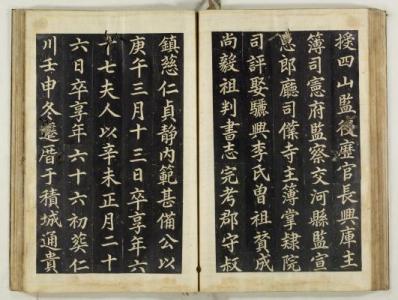 授四山監役歷官長興庫主
簿司憲府監察交河縣監宣
惠郎廳司僕寺主簿掌隸院
司評娶驪興李氏曾祖贇成
尚毅祖判書志完考郡守叔
鎮慈仁貞静內範甚備公以
庚午三月十三日卒享年六
十七夫人以辛未正月二十
六日卒享年六十六初葬仁
川壬申冬遷厝于積城通貴